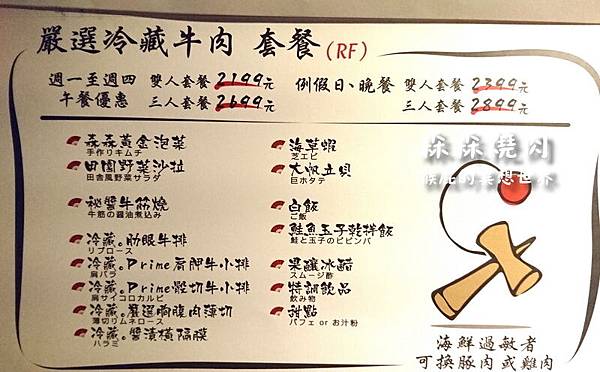 嚴選冷藏牛肉 套餐(RF)
週一至週四 雙人套餐 2199元 例假日、晚餐 雙人套餐 2399元
午餐優惠 三人套餐 2699元 三人套餐 2899元
森森黃金泡菜
手作りキムチ
田園野菜沙拉
田舎風野菜サラダ
秘醬牛筋燒
牛筋の醤油煮込み
冷藏。肋眼牛排
リブロース
冷藏。Prime肩胛牛小排
肩バラ
冷藏。Prime骰切牛小排
肩サイコロカルビ
冷藏。嚴選胸腹肉薄切
薄切りムネロース
冷藏。醬漬橫隔膜
ハラミ
海草蝦
芝エビ
大帆立貝
巨ホタテ
白飯
ご飯
鮭魚玉子乾拌飯
鮭と玉子のビビンバ
果釀冰醋
スムージ酢
特調飲品
飲み物
甜點
パフェ or お汁粉
森森燒肉
的美想世界
海鮮過敏者
可換豚肉或雞肉